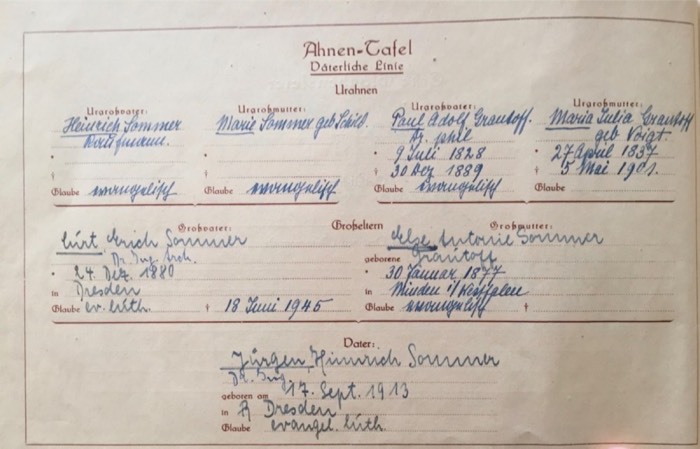 Ahnen-Tafel
Väterliche Linie
Urahnen
Urgroßvater:
Heinrich Sommer
Kaufmann.
*
†
Glaube evangelisch
Urgroßmutter:
Marie Sommer geb.
*
†
Glaube evangelisch
Urgroßvater:
Paul Adolf Grautoff.
Dr. phil
* 9 Juli 1828
† 30 Dez 1889
Glaube evangelisch
Urgroßmutter:
Maria Julia Grautoff
geb Voigt.
* 27 April 1837
† 5 Mai 1901.
Glaube
Großeltern
Großvater:
Curt Erich Sommer
Dr. Ing.
* 24. Dez. 1880
in Dresden
Glaube ev. luth. † 18 Juni 1945
Großmutter:
Else Antonie Sommer
geborene Grautoff
* 30 Januar 1877
in Minden i/Westfalen
Glaube evangelisch †
Vater:
Jürgen Hinrich Sommer
Dr. Ing
geboren am 17. Sept. 1913
in Dresden
Glaube evangel. luth.